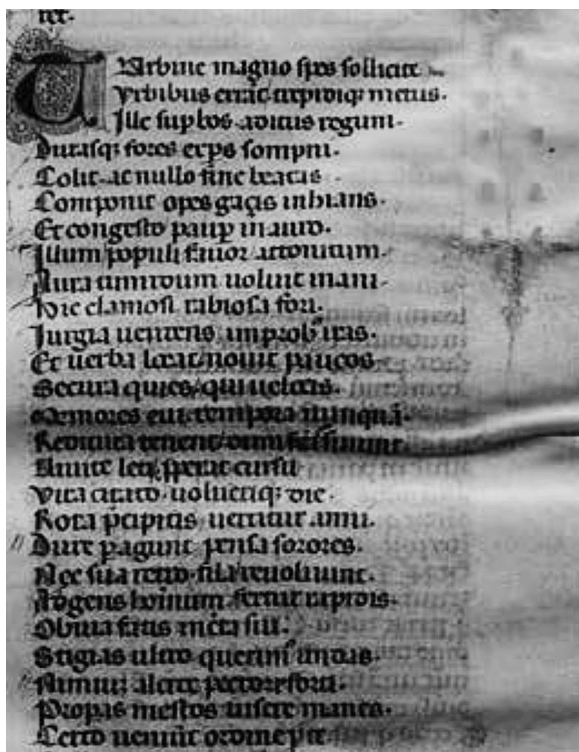 ret.
TVrbine magno spes sollicite
Vrbibus errāt trepidiq; metus.
Ille supbos aditus regum.
Durasq; fores exps sompni.
Colit. ac nullo fine beatas
Componit opes gaçis inhians.
Et congesto paup in auro.
Illum populi fauor attonitum.
Aura tumidum uoluit inani.
Hic clamosi rabiosa fori.
Iurgia uendens improbus iras.
Et uerba locat. nouit paucos.
Secura quies. qui uelocis.
Memores eui tempora nunquā.
Reditura tenent. dum fata sinunt.
Viuite leti. properat cursu
Vita citato. uolucriq; die.
Rota p̄cipitis uertitur anni.
Dure pagunt pensa sorores.
Nec sua retro fila reuoluunt.
At gens hoīnum fertur rapidis.
Obuia fatis incerta suis.
Stigias ultro querimus undas.
Nimium alcide pectore forti.
Propas mestos uisere manes.
Certo ueniūt ordine